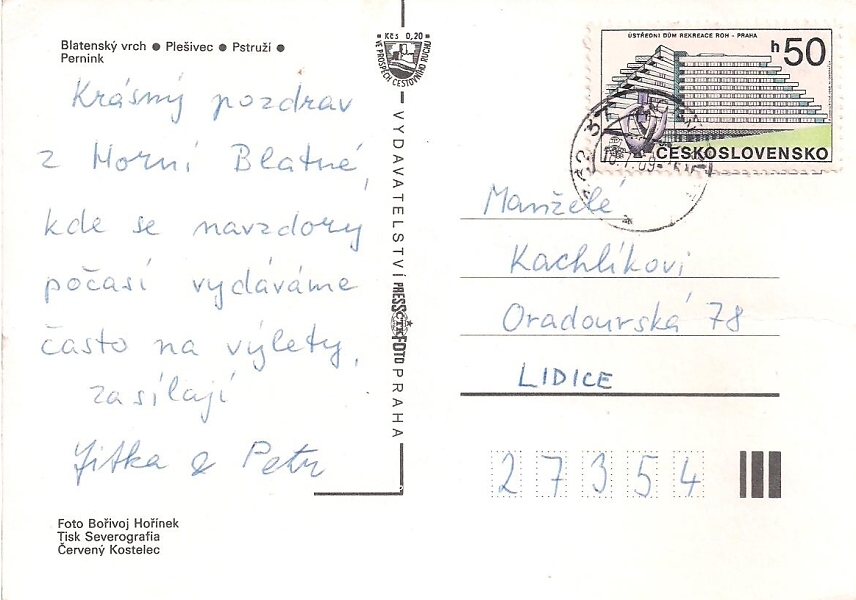 Blatenský vrch ● Plešivec ● Pstruží ●
Pernink
Krásný pozdrav
z Horní Blatné,
kde se navzdory
počasí vydáváme
často na výlety,
zasílají
Jitka & Petr
Foto Bořivoj Hořínek
Tisk Severografia
Červený Kostelec
Kčs 0,20
VE PROSPĚCH CESTOVNÍHO RUCHU
VYDAVATELSTVÍ PRESSFOTO PRAHA
ČTK
ÚSTŘEDNÍ DŮM REKREACE ROH - PRAHA
h50
ČESKOSLOVENSKO
Manželé
Kachlíkovi
Oradourská 78
LIDICE
27354